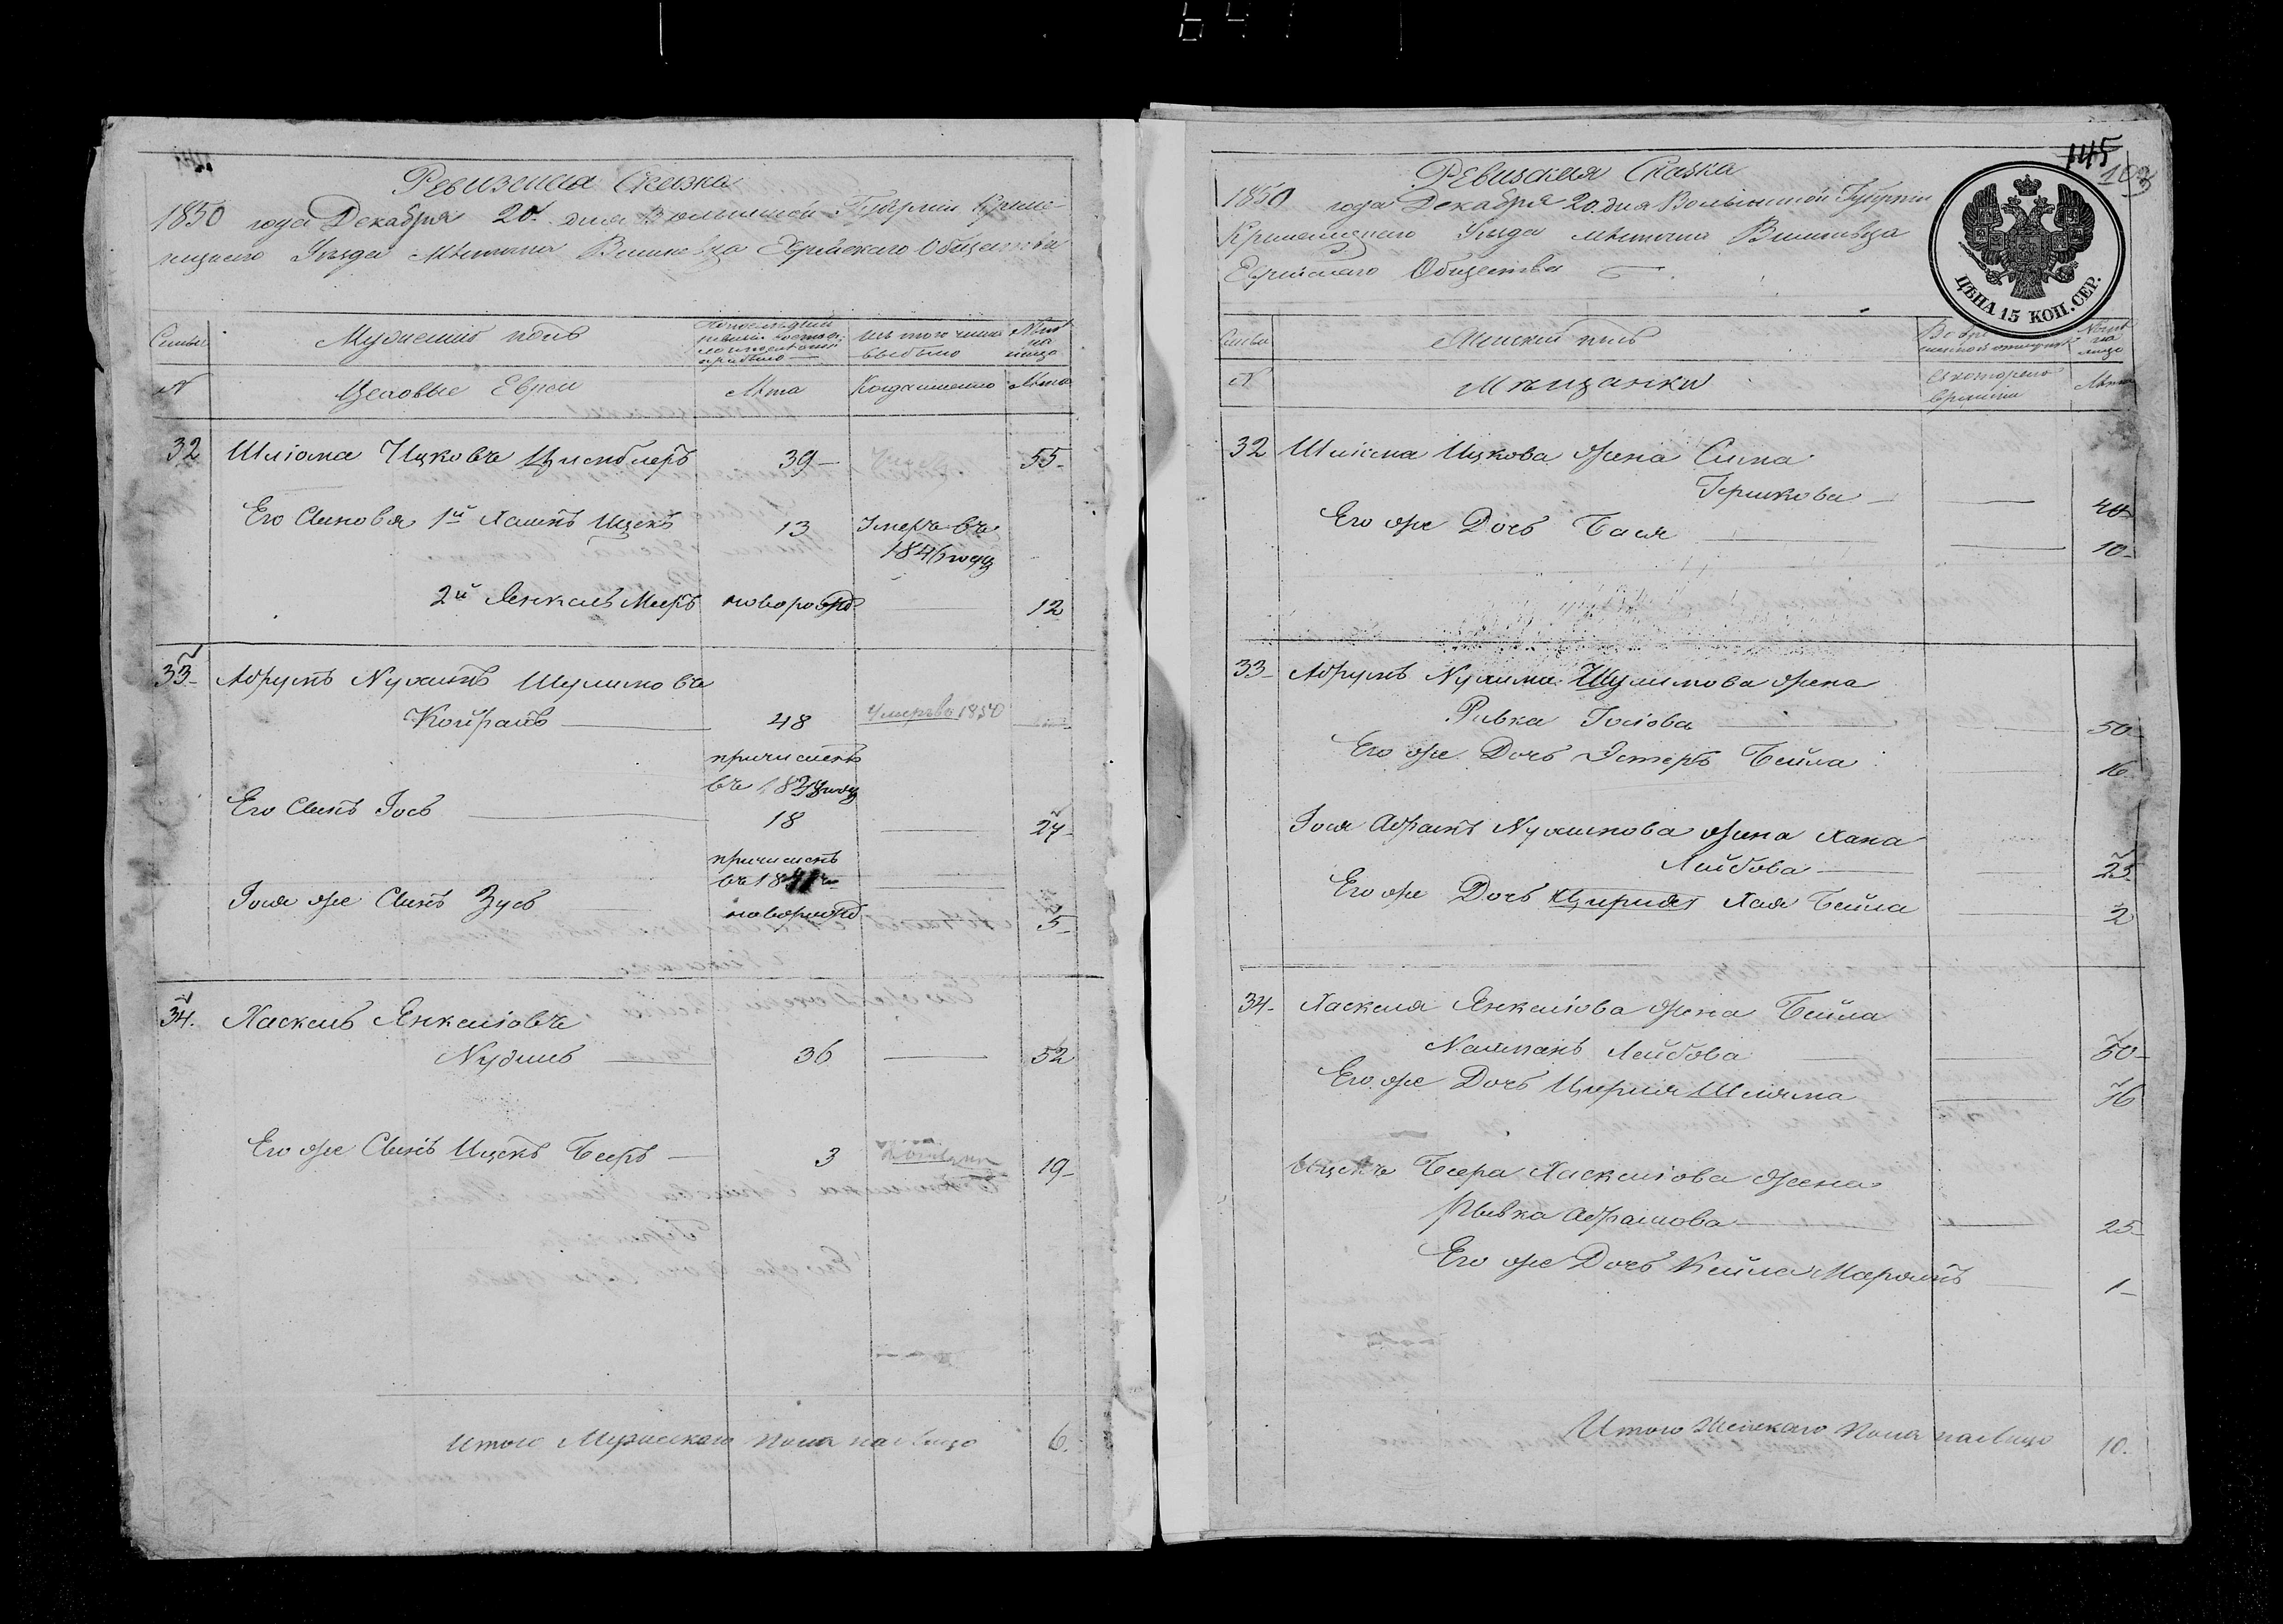 641
Ревизская Сказка
1850 года Декабря 20. дня Волынской Губерніи Креме-
нецкаго Уѣзда мѣстечка Вишневца Еврейскаго Общества
Семьи
Мужескій полъ
Изъ того числа выбыло
Нынѣ на лицо
N
Цеховые Евреи
Лѣта
Когда именно
Лѣта
32 Шліома Ицковъ Цимблеръ 39 55
Его Сыновя 1й Хаимъ Ицекъ 13 Умеръ въ
1846 году
2й Янкель Мееръ новорожд 12
33 Абрумъ Нухимъ Шулимовъ
Койфманъ 48 Умеръ въ 1850
причисленъ
Его Сынъ Іось 18 27
причисленъ
въ 1841
Іося же Сынъ Зусь новорожд 5
34. Хаскель Янкеліовъ
Нудель 36 52
Его же Сынъ Ицекъ Беръ 3 19
Итого Мужескаго пола на лицо 6.
145
103
Ревизская Сказка
1850 года Декабря 20. дня Волынской Губерніи
Кременецкаго Уѣзда мѣстечка Вишневца
Еврейскаго Общества
ЦѢНА 15 КОП. СЕР.
Семьи
Женскій полъ
Во временной отлучкѣ
Нынѣ на лицо
N
Мѣщанки
Съ котораго времени
Лѣта
32 Шліома Ицкова жена Сима
Гершкова 40
Его же Дочь Бася 10
33 Абрумъ Нухима Шулимова жена
Ривка Іосіова 50
Его же Дочь Эстеръ Бейла 16
Іося Абрамъ Нухимова жена Хана
Лейбова 25
Его же Дочь Цирля Хая Бейла 2
34 Хаскеля Янкеліова жена Бейла
Лейбова 50
Его же Дочь Цирля Шлима 16
Ицекъ Бера Хаскеліова жена
Ривка Абрамова 25
Его же Дочь Кейла 1
Итого Женскаго пола на лицо 10.